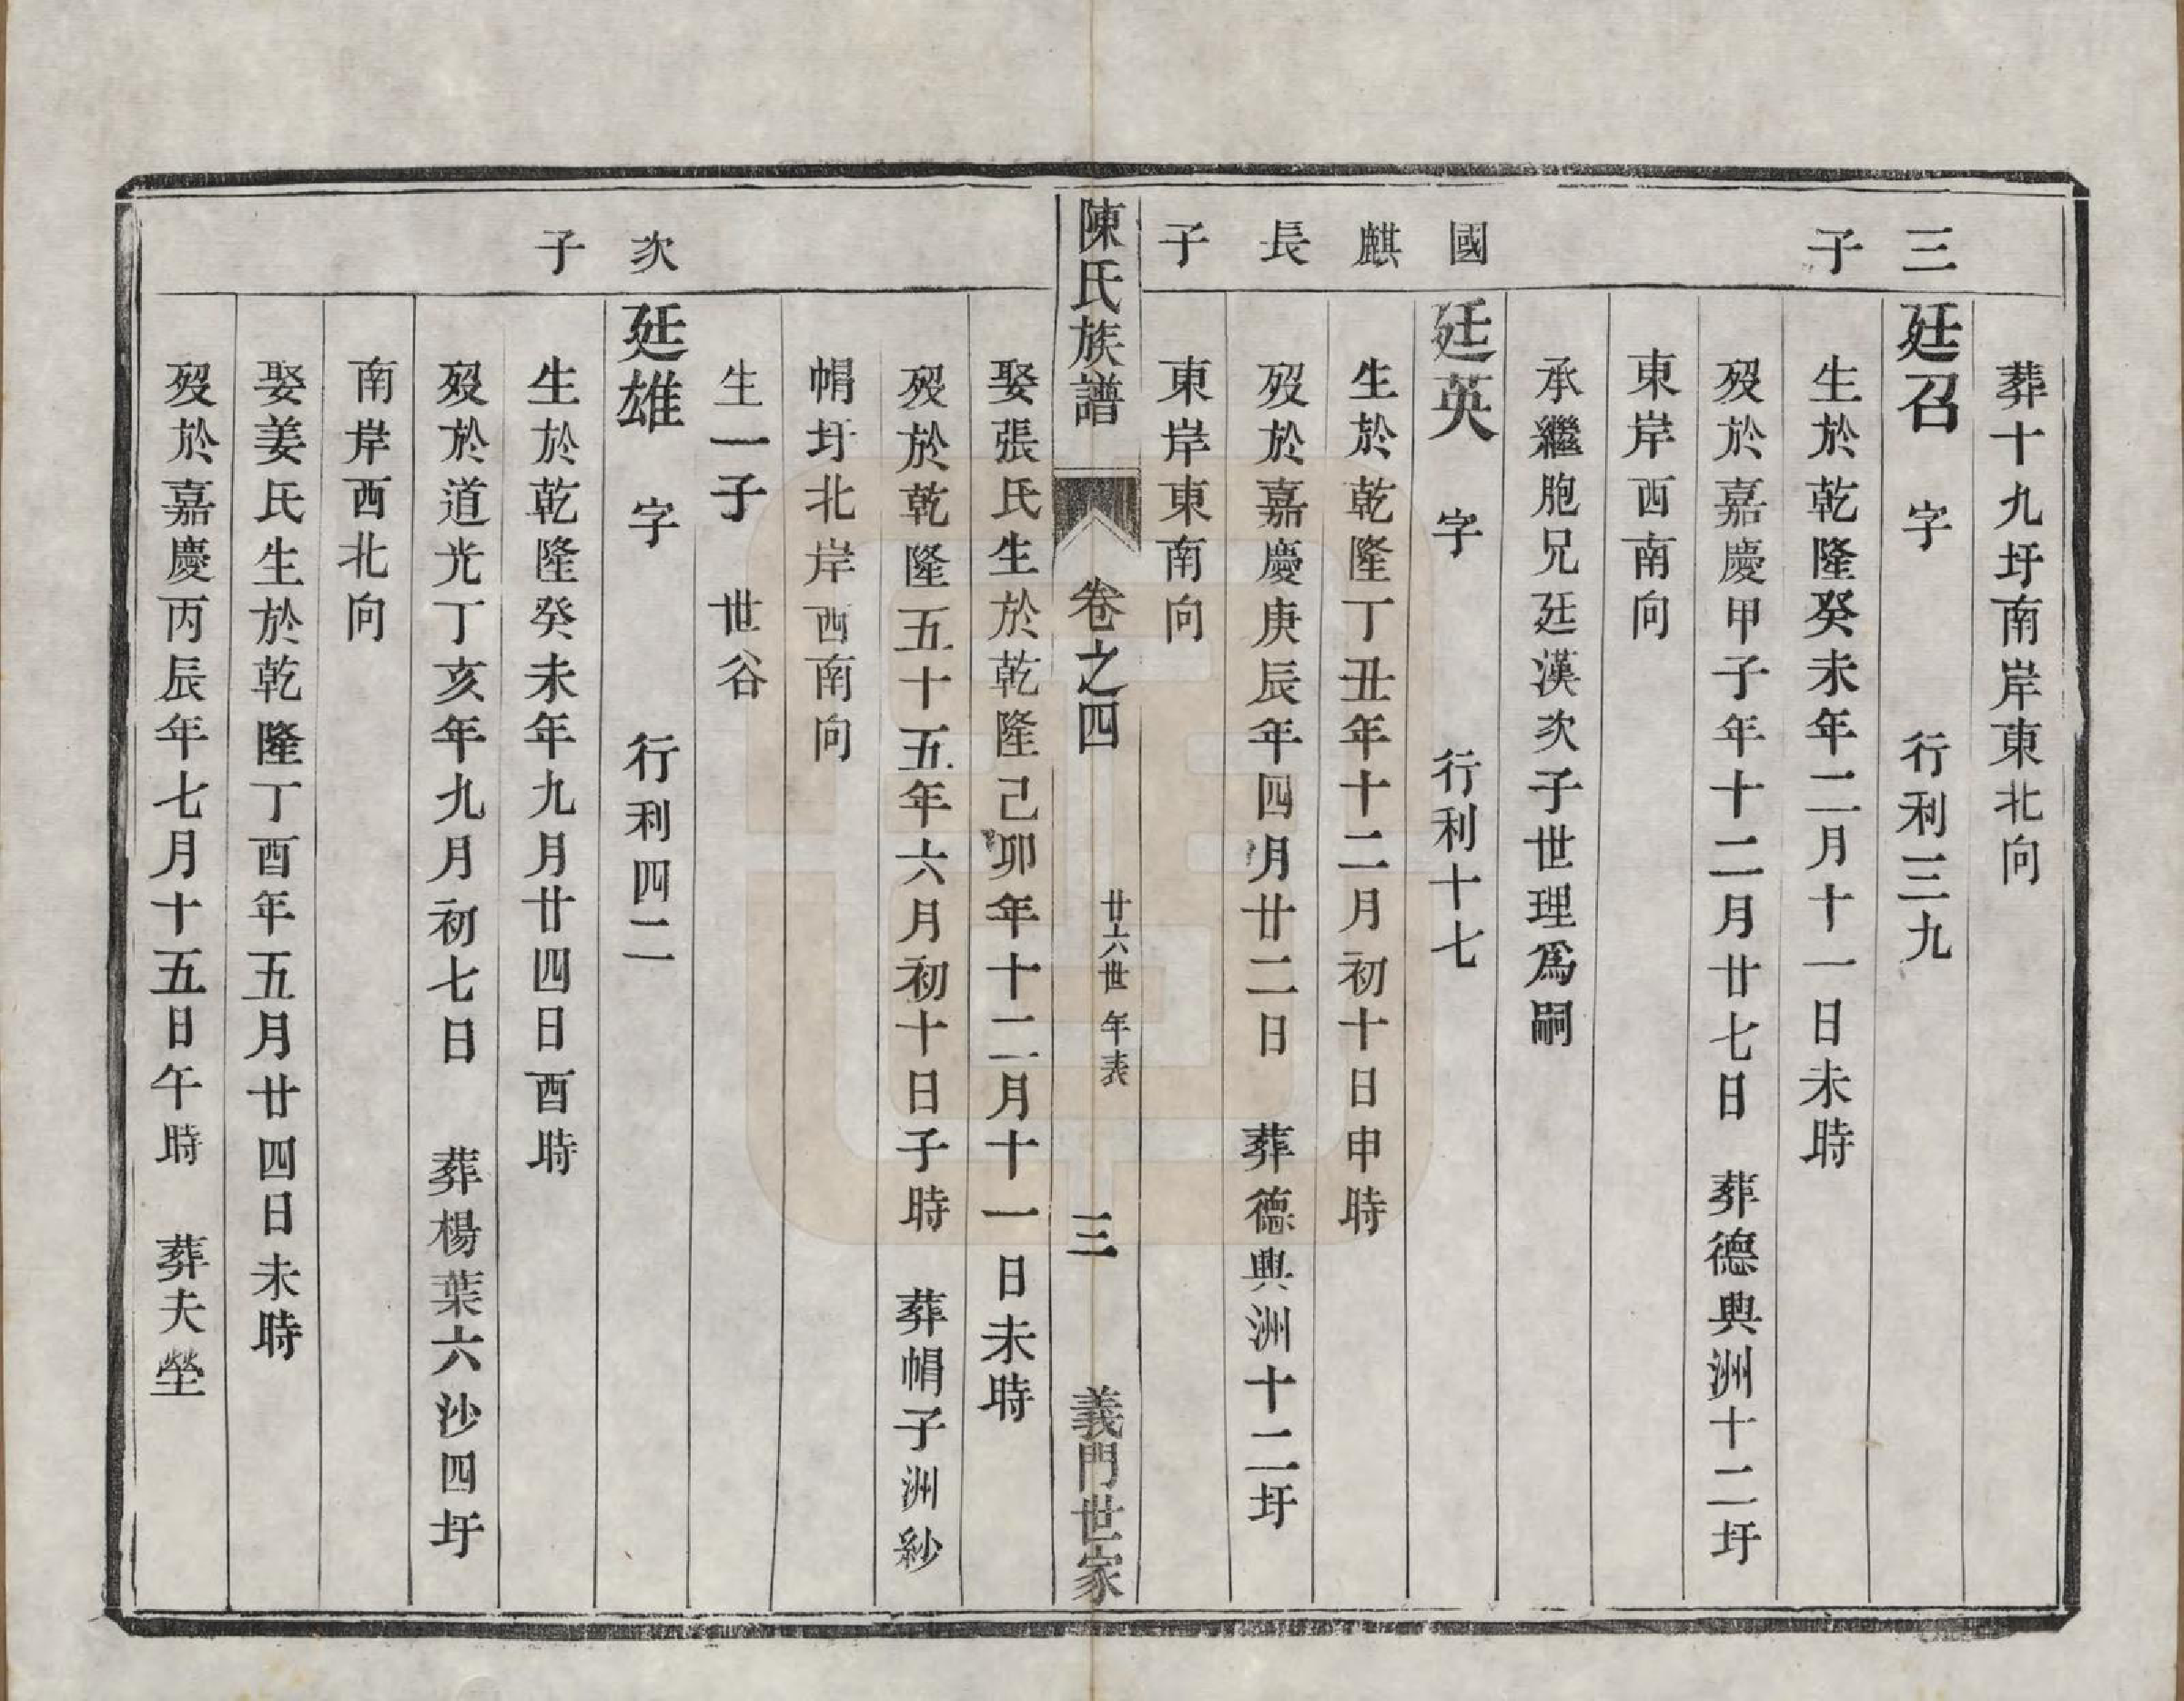 葬十九圩南岸東北向
三子
廷召　字　行利三九
生於乾隆癸未年二月十一日未時
歿於嘉慶甲子年十二月廿七日　葬德興洲十二圩
東岸西南向
承繼胞兄廷漢次子世理為嗣
國麒長子
廷英　字　行利十七
生於乾隆丁丑年十二月初十日申時
歿於嘉慶庚辰年四月廿二日　葬德興洲十二圩
東岸東南向
陳氏族譜　卷之四　廿六世　年表　三　義門世家
娶張氏生於乾隆己卯年十二月十一日未時
歿於乾隆五十五年六月初十日子時　葬帽子洲紗
帽圩北岸西南向
生一子　世谷
次子
廷雄　字　行利四二
生於乾隆癸未年九月廿四日酉時
歿於道光丁亥年九月初七日　葬楊葉六沙四圩
南岸西北向
娶姜氏生於乾隆丁酉年五月廿四日未時
歿於嘉慶丙辰年七月十五日午時　葬夫塋